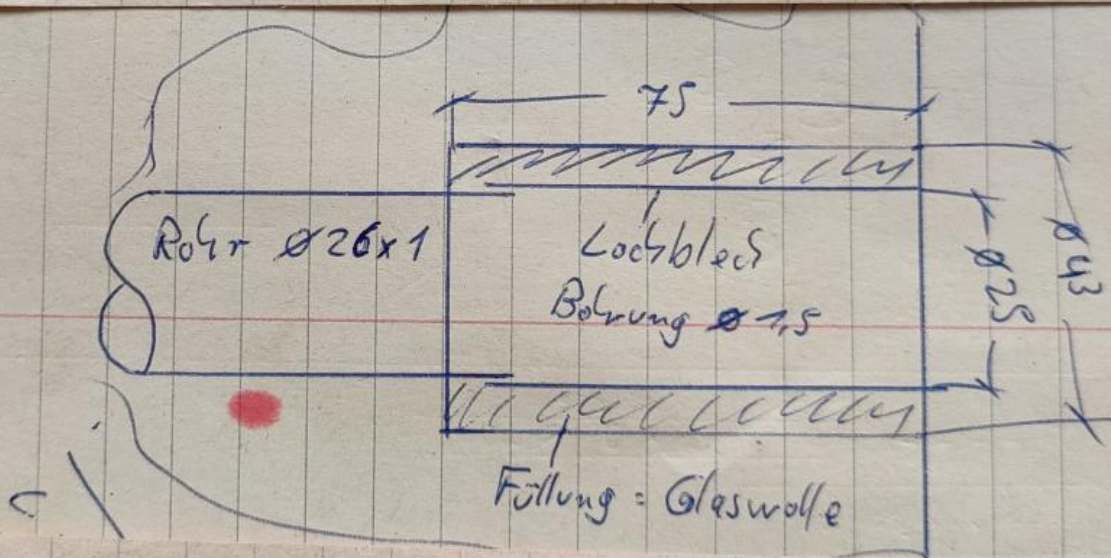 75
Rohr ø26x1
Lochblech
Bohrung ø1,5
ø25
ø43
Füllung = Glaswolle